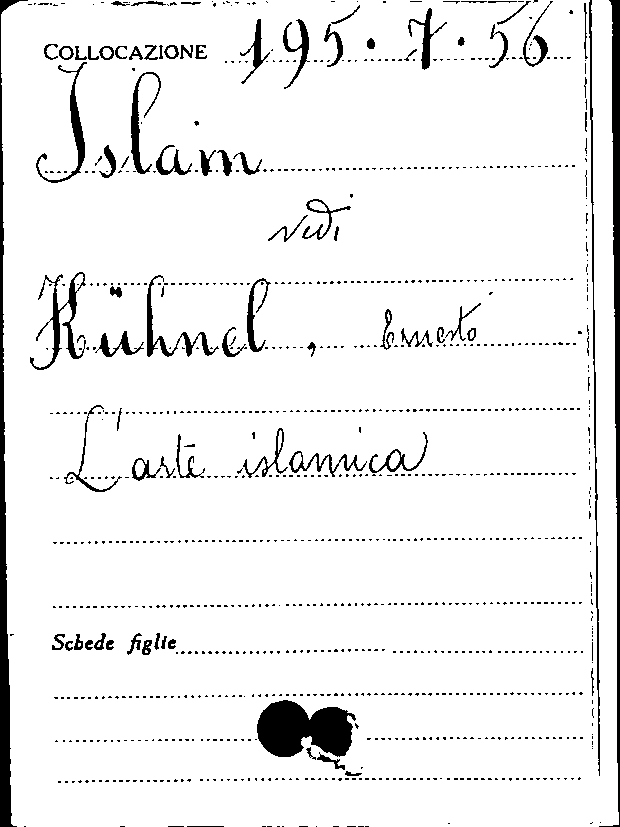 COLLOCAZIONE 195.7.56
Islam
vedi
Kühnel, Ernesto
L'arte islamica
Schede figlie